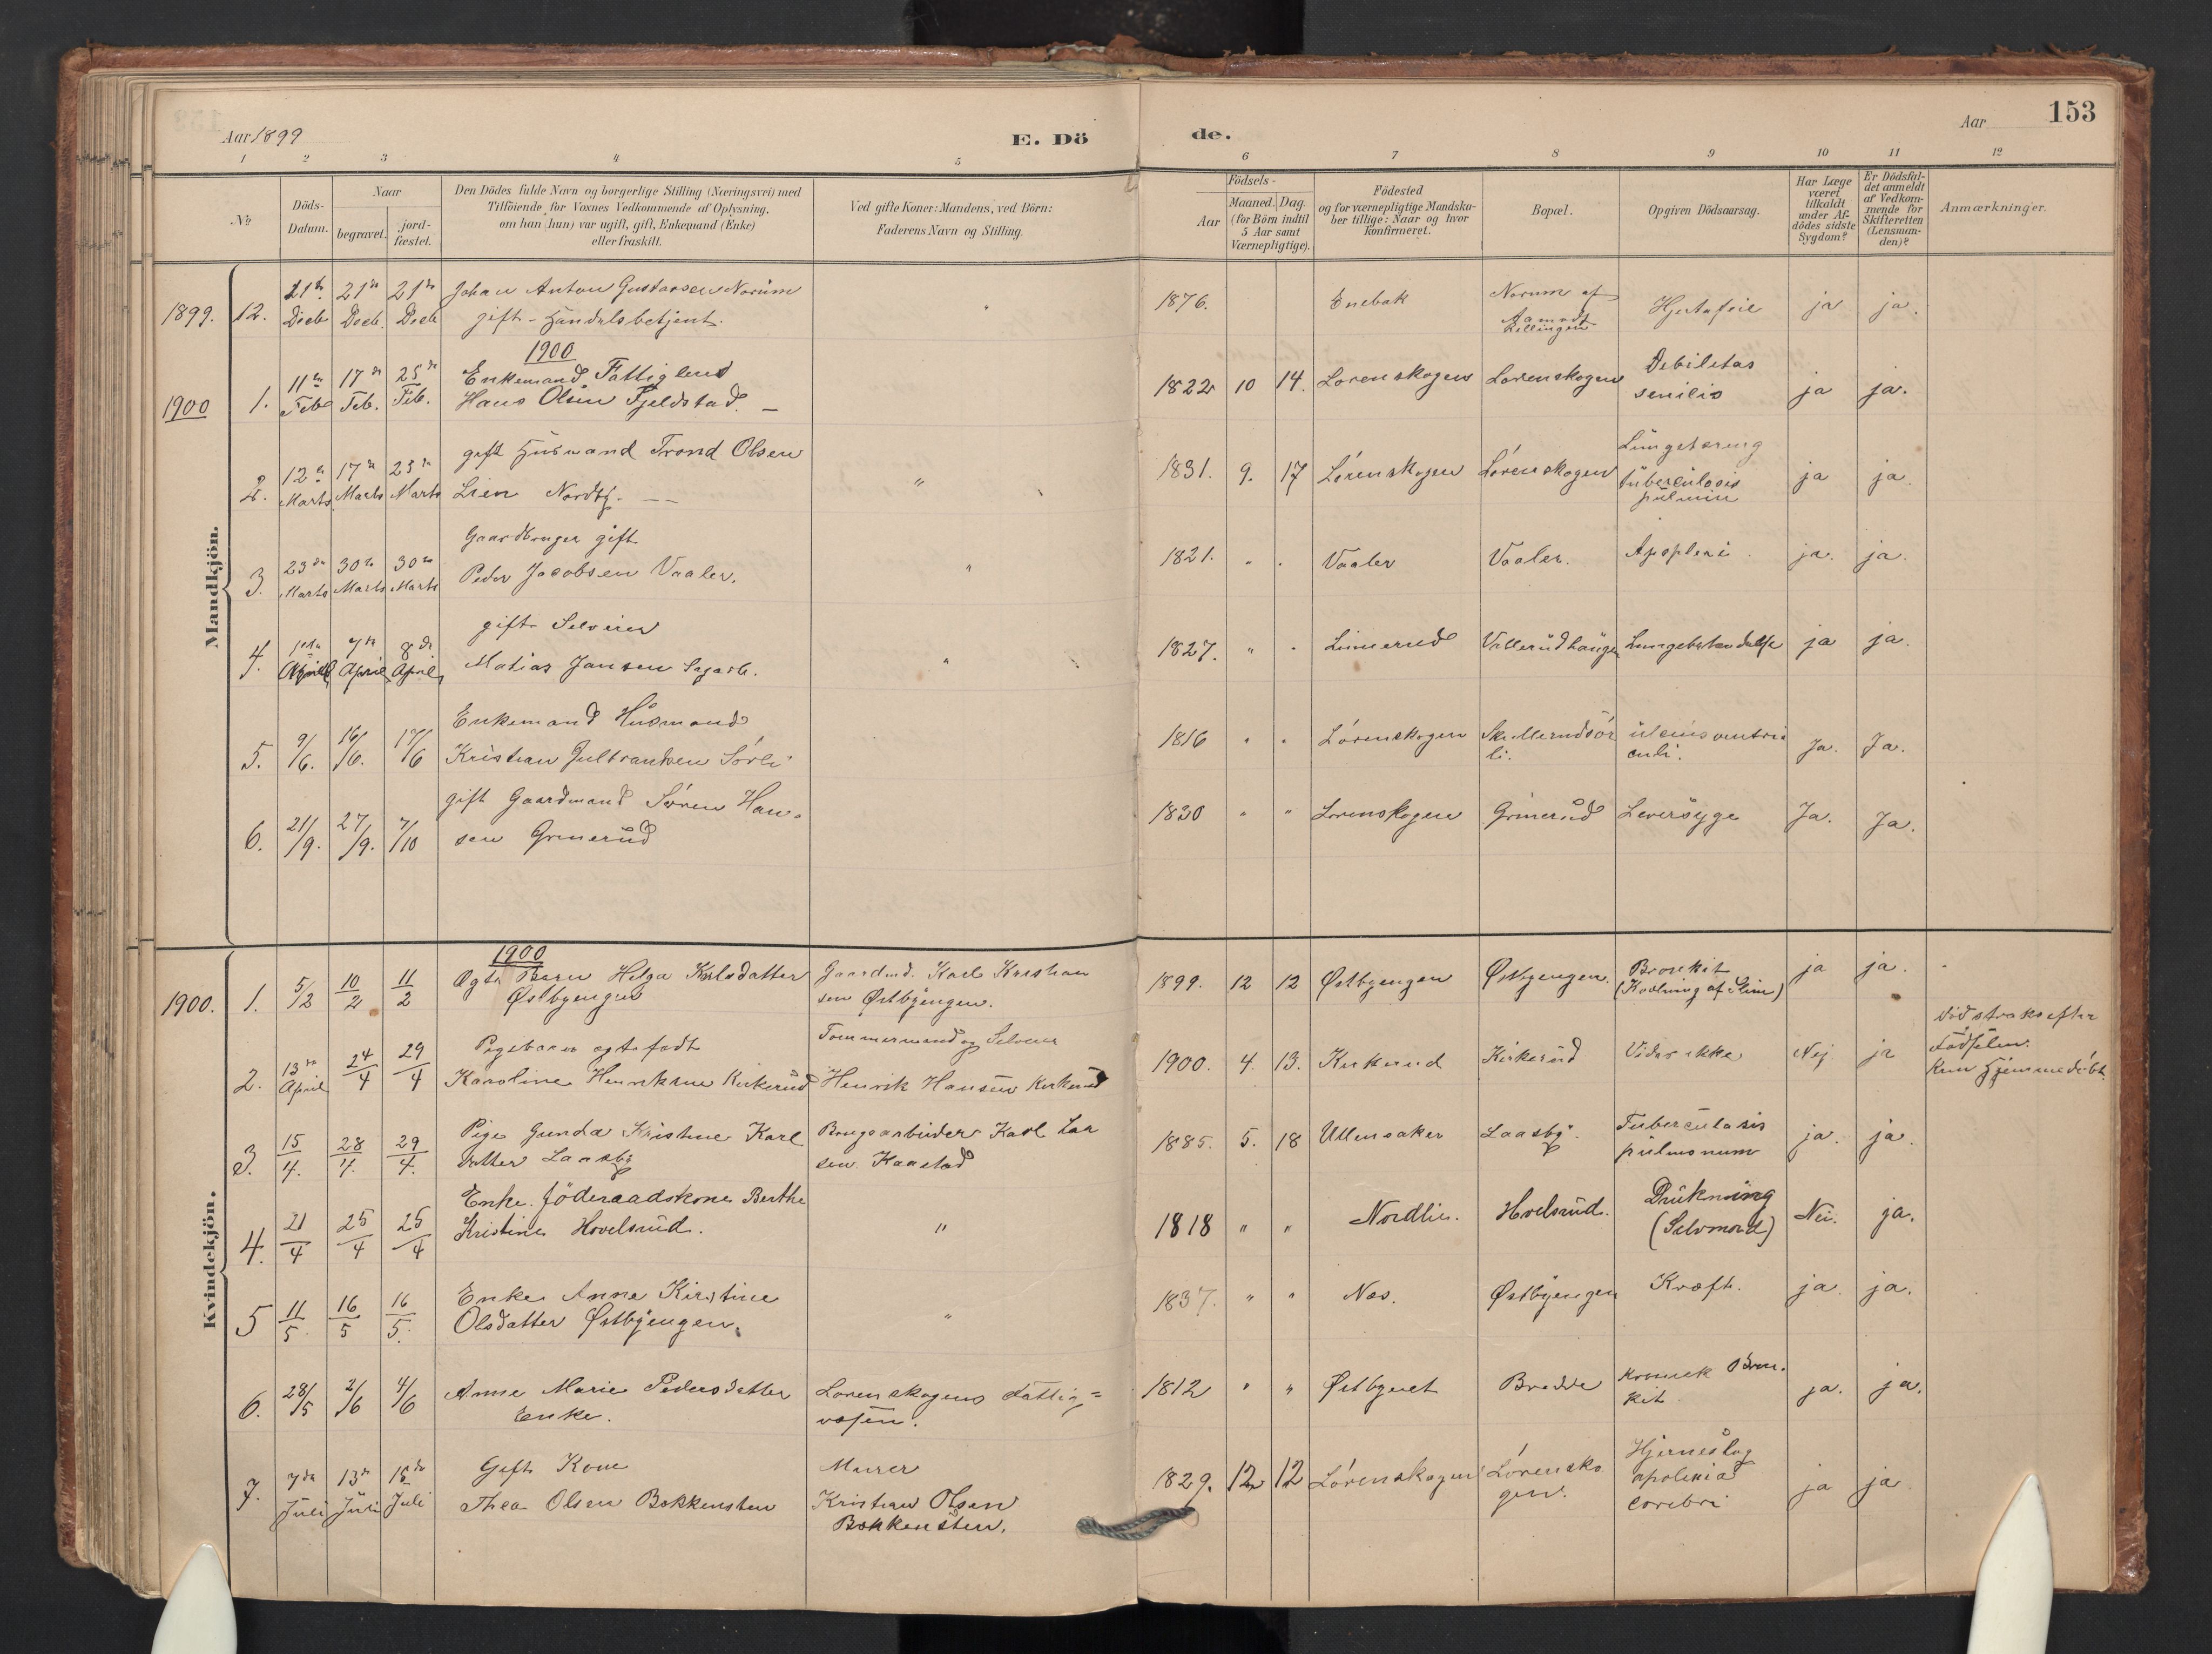 Aar 1899
E. Dö
de.
Aar
153
1 2 3 4 5 6 7 8 9 10 11 12
No
Döds-
Datum.
Naar
begravet.
jord-
fæstet.
Den Dödes fulde Navn og borgerlige Stilling (Næringsvei) med
Tilföiende for Voxnes Vedkommende af Oplysning,
om han (hun) var ugift, gift, Enkemand (Enke)
eller fraskilt.
Ved gifte Koner: Mandens, ved Börn:
Faderens Navn og Stilling.
Födsels-
Aar
Maaned. Dag.
(for Börn indtil
5 Aar samt
Værnepligtige).
Födested
og for værnepligtige Mandska-
ber tillige: Naar og hvor
konfirmeret.
Bopæl.
Opgiven Dödsaarsag.
Har Læge
været
tilkaldt
under Af-
dödes sidste
Sygdom?
Er Dödsfal-
det anmeldt
af Vedkom-
mende for
Skifteretten
(Lensman-
den)?
Anmærkninger.
Mandkjön.
1899. 12. 21de Decb 21de Decb. 21de Decb Johan Anton Gustavsen Norum
gift - Handelsbetjent. " 1876. Enebak Norum af
Hjertefeil ja ja.
1900
1900 1. 11te Feb 17de Feb. 25de Feb. Enkemand Fattiglem
Hans Olsen Fjeldstad. — 1822 10 14. Lorenskogen Lorenskogen Debilitas
senilis ja ja.
2. 12te Marts 17de Marts 23de Marts gift Husmand Trond Olsen
Lien Nordby. — " 1831. 9. 17 Lörenskogen Lörenskogen Lungetæring
tuberculosis
pulmin ja ja.
3. 23de Marts 30te Marts 30te Marts Gaardbruger gift
Peder Jacobsen Vaaler. " 1821. " " Vaaler Vaaler. Apoplexi. ja. ja.
4. 1ste April 7de April 8de April gift Selveier
Matias Jansen Sagarb. " 1827. " " Linnerud Vallerudhaugen Lungebetændelse ja ja.
5. 9/6. 16/6. 17/6 Enkemand Husmand
Kristian Gulbrandsen Sörli 1816 " " Lörenskogen Skullerudsör
li. ulcus ventri
culi. Ja. Ja.
6. 21/9. 27/9. 7/10 gift Gaardmand Sören Han-
sen Grinerud 1830 " " Lorenskogen Grinerud Leversyge Ja. Ja.
Kvindekjön.
1900
1900. 1. 5/2 10/2 11/2 Ægte Barn Helga Karlsdatter
Østbyengen Gaardmd. Karl Kristian
sen Østbyengen. 1899. 12 12 Østbyengen Østbyengen. Bronkit
(Kvælning af Slim) ja ja.
2. 13de April 24/4 29/4 Pigebarn ægte födt
Karoline Henrikine Kirkerud Tømmermand og Selveier
Henrik Hansen Kirkerud 1900. 4. 13. Kirkerud Kirkerud Vides ikke Nej. ja död straks efter
Födselen.
Kun Hjemmedöbt.
3. 15/4. 28/4. 29/4. Pige Gunda Kristine Karl
datter Laasby Brugsarbeider Karl Lar
sen Kaastad 1885. 5. 18 Ullensaker Laasby. Tuberculosis
pulmonum ja. ja.
4. 21/4 25/4 25/4 Enke. Föderaadskone Berthe
Kristine Hovelsrud. " 1818 " " Nordlie. Hovelsrud. Drukning
(Selvmord) Nei. ja.
5 11/5. 16/5 16/5. Enke Anne Kirstine
Olsdatter Østbyengen. " 1837. " " Nes. Østbyengen Kræft. ja. ja.
6. 28/5 2/6 4/6 Anne Marie Pedersdatter
Enke. Lorenskogens Fattig=
væsen. 1812 " " Østbyeiet Bredde Kronisk Bron-
kit ja. ja.
7. 7de Juli 13de Juli 15de Juli Gift Kone
Thea Olsen Bekkensten Murer
Kristian Olsen
Bekkensten. 1829. 12 12 Lörenskogen Lörensko
gen. Hjerneslag
apolexia
cerebri ja ja